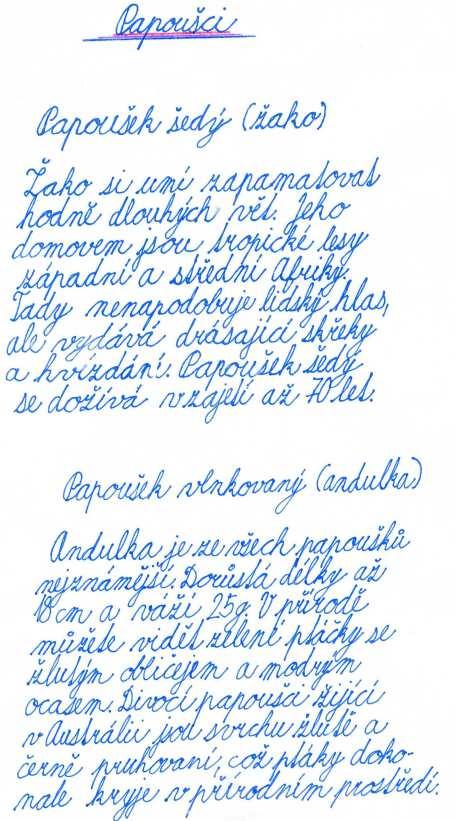 Papoušci
Papoušek šedý (žako)
Žako si umí zapamatovat
hodně dlouhých vět. Jeho
domovem jsou tropické lesy
západní a střední Afriky.
Tady nenapodobuje lidský hlas,
ale vydává drásající skřeky
a hvízdání. Papoušek šedý
se dožívá v zajetí až 70 let.
Papoušek vlnkovaný (andulka)
Andulka je ze všech papoušků
nejznámější. Dorůstá délky až
18 cm a váží 25g. V přírodě
můžete vidět zelené ptáčky se
žlutým obličejem a modrým
ocasem. Divocí papoušci žijící
v Austrálii jsou svrchu žlutě a
černě pruhovaní, což ptáky doko-
nale kryje v přírodním prostředí.